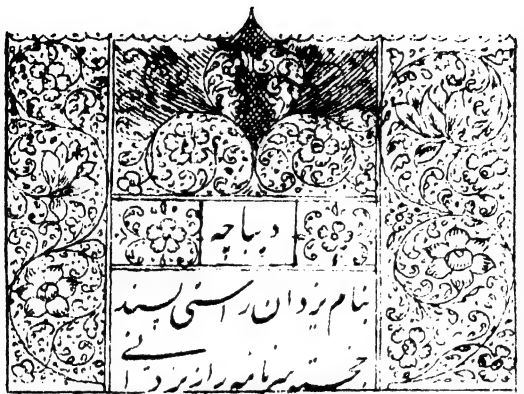 دیباچه
بنام یزدان راستی پسند
خجسته سرنامه راز یزدانی